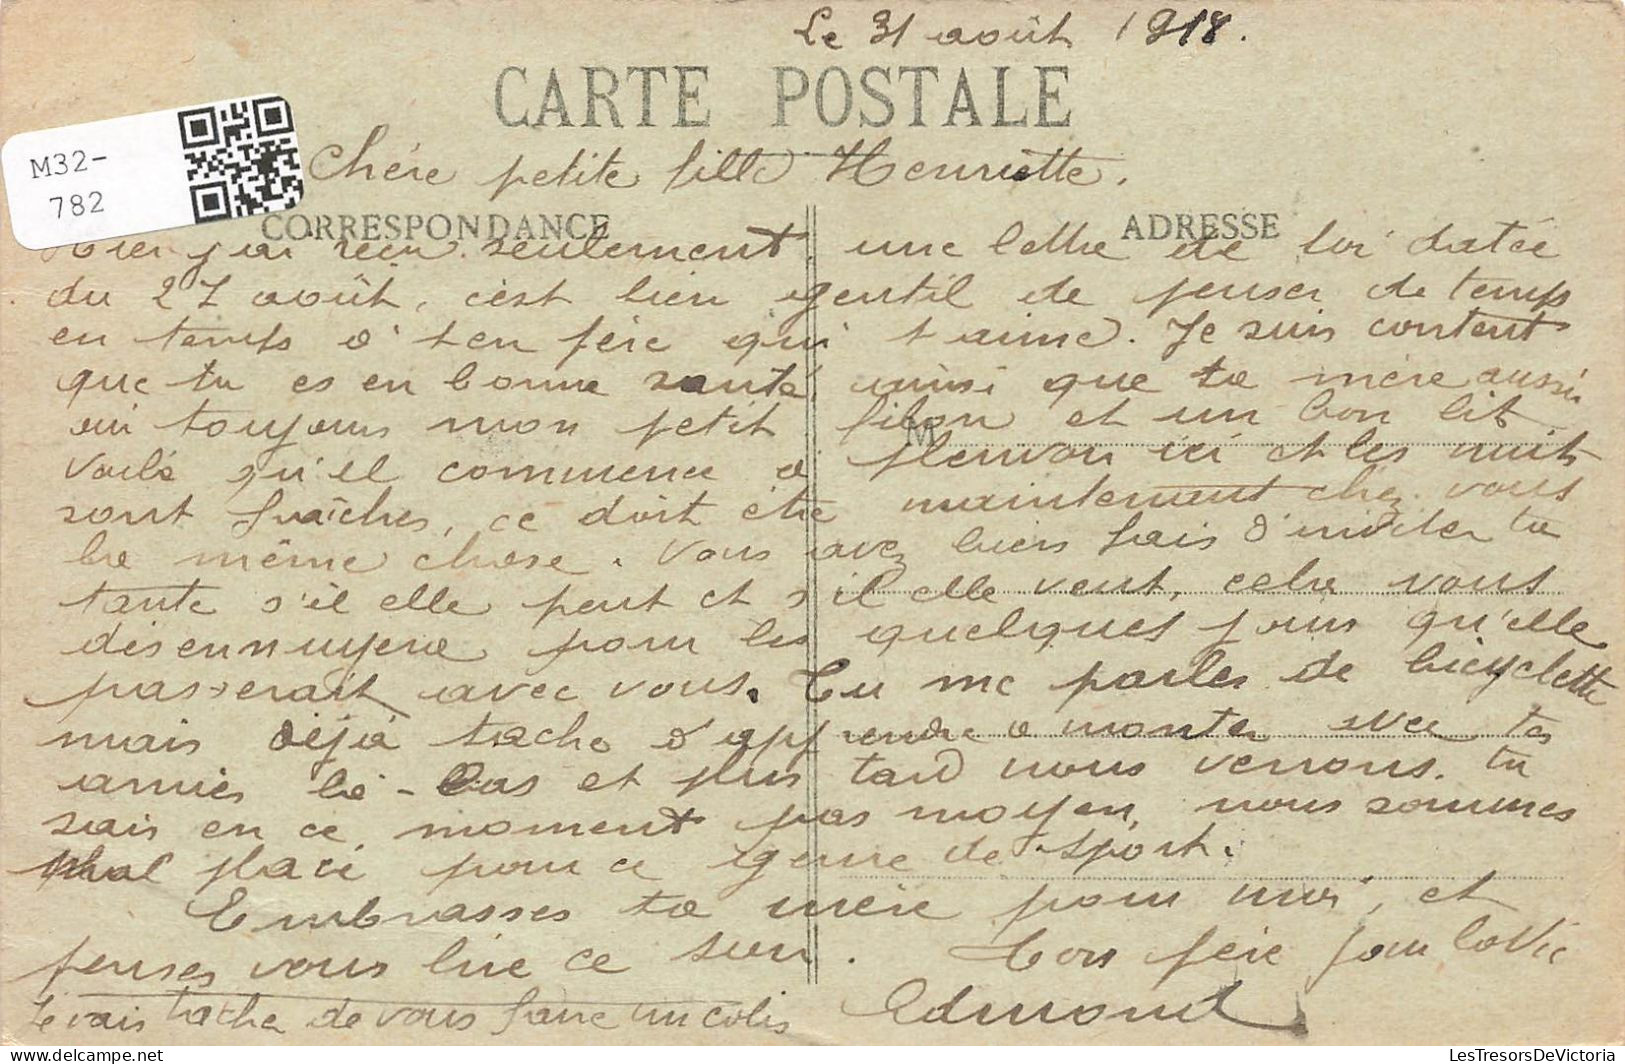 Le 31 août 1918.
CARTE POSTALE
M32-
782
Chére petite fille Henriette.
CORRESPONDANCE
ADRESSE
Hier j'ai reçu seulement une lettre de toi datée
du 27 août, c'est bien gentil de penser de temps
en temps à ton père qui t'aime. Je suis content
que tu es en bonne santé ainsi que ta mère aussi
oui toujours mon petit filon et un bon lit
M
voilà qu'il commence à pleuvoir ici et les nuits
sont fraîches, ce doit être maintenant chez vous
la même chose. Vous avez bien fais d'inviter ta
tante s'il elle peut et s'il elle veut, cela vous
désennuyera pour les quelques jours qu'elle
passerait avec vous. Tu me parles de bicyclette
mais déjà tache d'apprendre a monter avec tes
amies là-bas et plus tard nous verrons. tu
sais en ce moment pas moyen, nous sommes
mal placé pour ce genre de sport.
Embrasses ta mère pour moi, et
penses vous lire ce soir. Ton père pour la vie
Je vais tacher de vous faire un colis
Edmond
LesTresorsDeVictoria